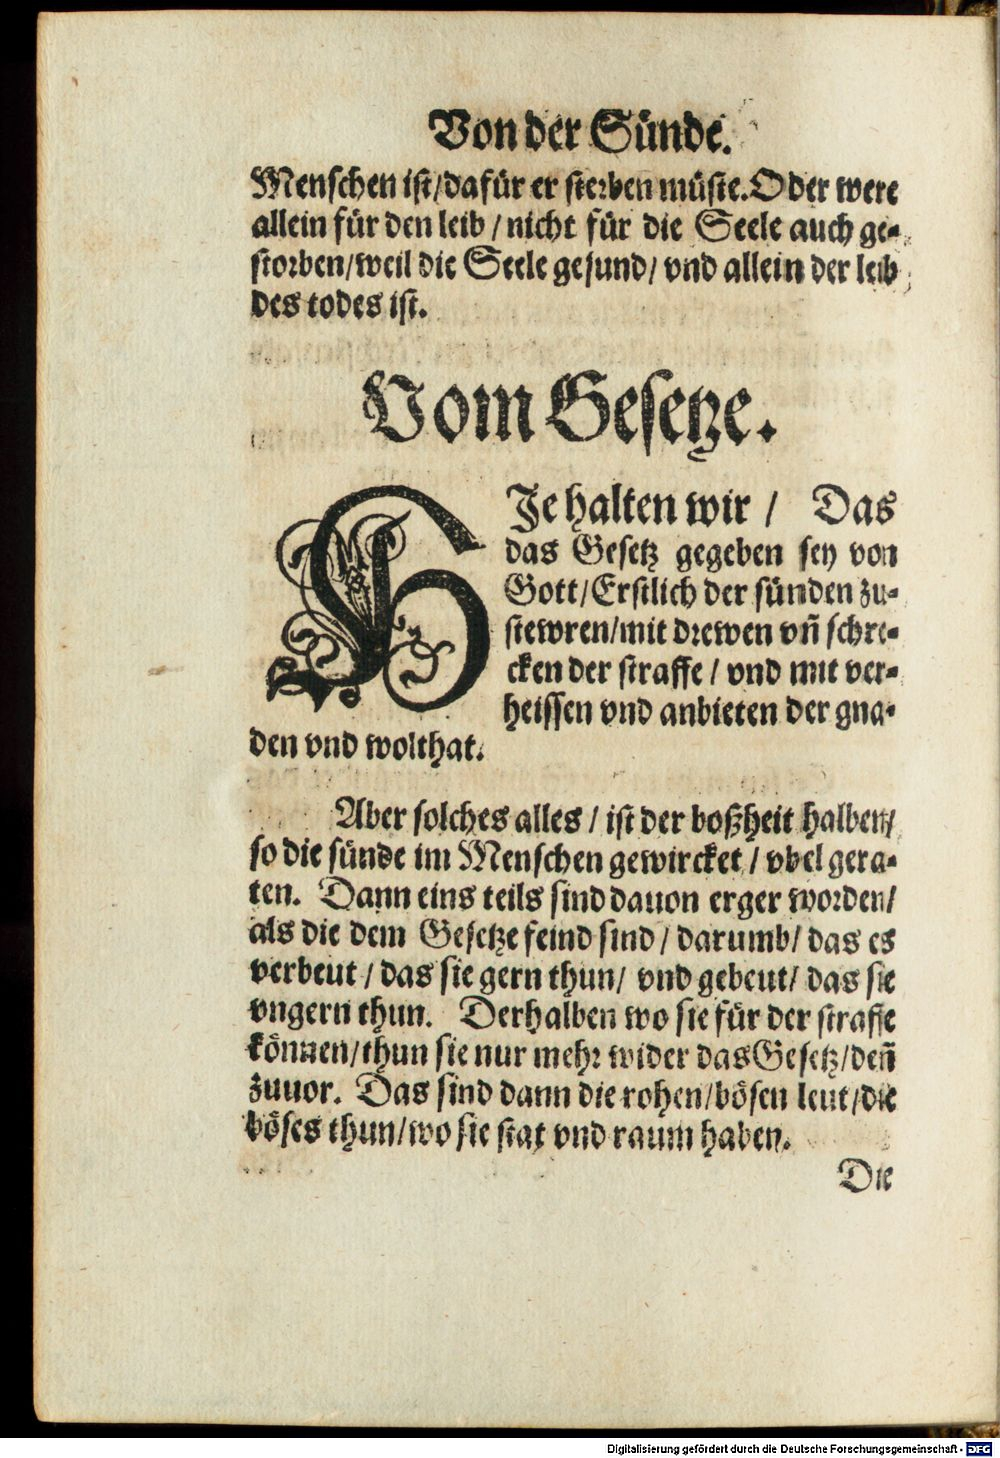 Von der Sünde.
Menschen ist/dafür er sterben müste. Oder were
allein für den leib / nicht für die Seele auch ge-
storben/weil die Seele gesund/ vnd allein der leib
des todes ist.
Vom Gesetze.
HJe halten wir / Das
das Gesetz gegeben sey von
Gott/Erstlich der sünden zu-
stewren/mit drewen vñ schre-
cken der straffe / vnd mit ver-
heissen vnd anbieten der gna-
den vnd wolthat.
Aber solches alles / ist der boßheit halben/
so die sünde im Menschen gewircket / vbel gera-
ten. Dann eins teils sind dauon erger worden/
als die dem Gesetze feind sind / darumb/ das es
verbeut / das sie gern thun/ vnd gebeut/ das sie
vngern thun. Derhalben wo sie für der straffe
können/thun sie nur mehr wider das Gesetz/deñ
zuuor. Das sind dann die rohen/bösen leut/die
böses thun/wo sie stat vnd raum haben.
Die
Digitalisierung gefördert durch die Deutsche Forschungsgemeinschaft - DFG